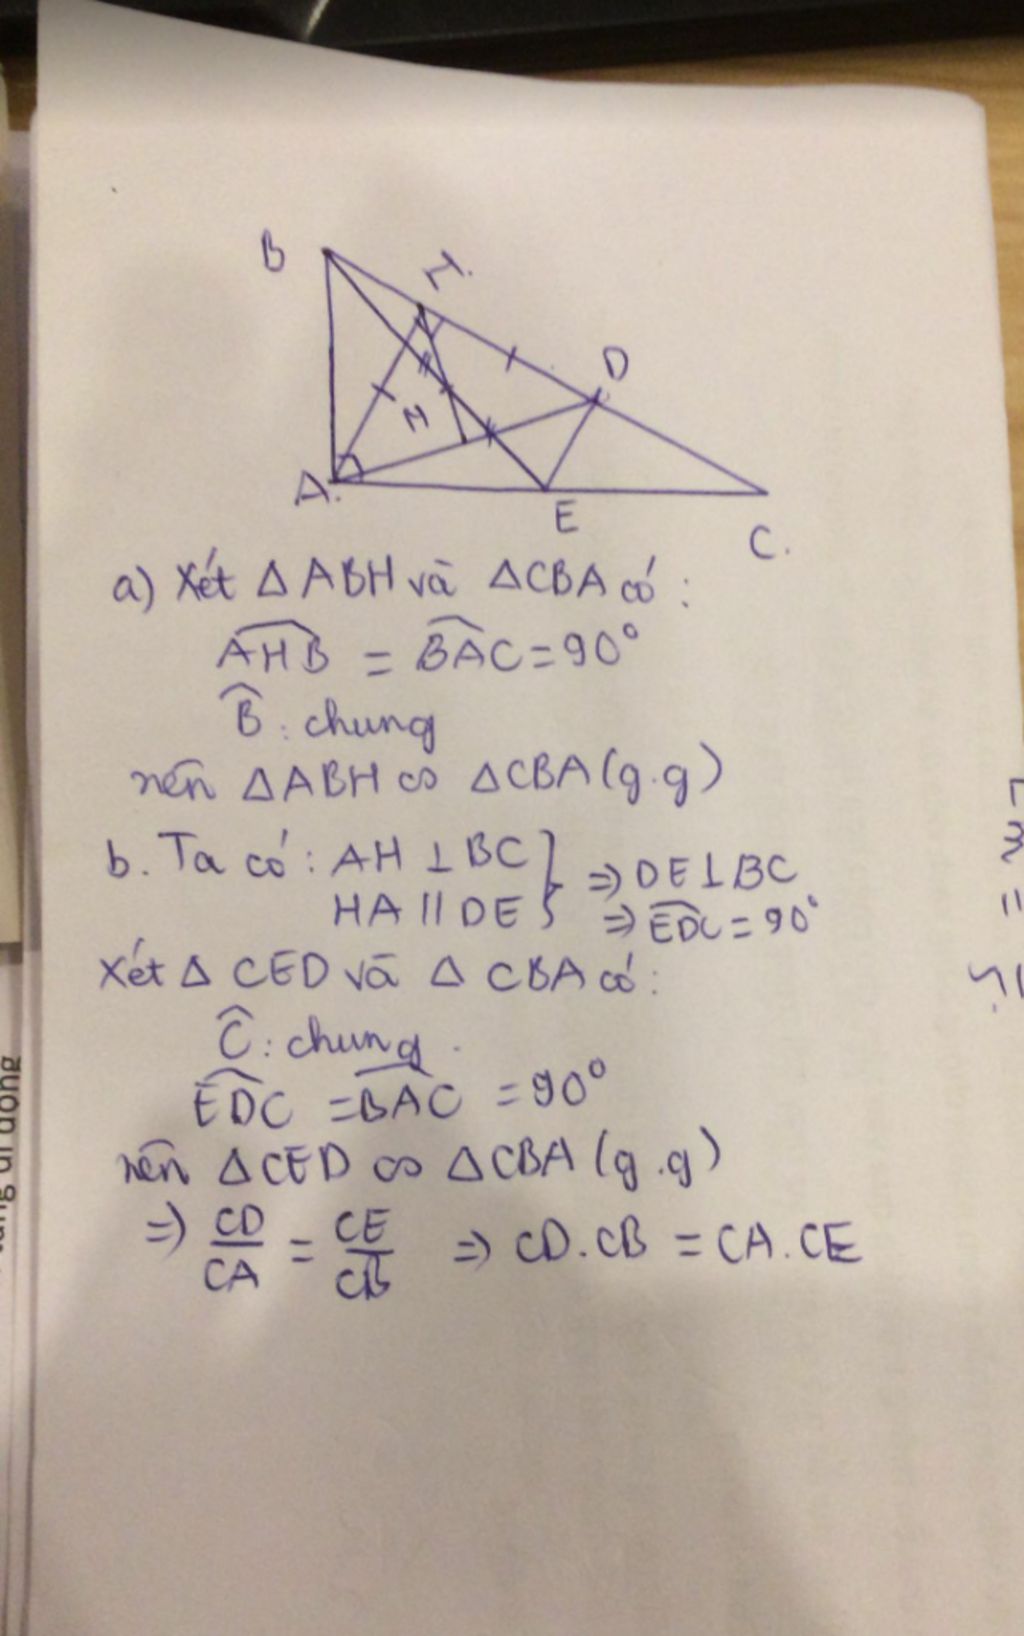 B
I.
D
H
A.
E
C.
a) Xét Δ ABH và ΔCBA có :
AHB = BAC = 90°
B : chung
nên ΔABH ∽ ΔCBA (g.g)
b. Ta có : AH ⊥ BC } ⇒ DE ⊥ BC
HA // DE ⇒ EDC = 90°
Xét Δ CED và Δ CBA có :
C : chung.
EDC = BAC = 90°
nên ΔCED ∽ ΔCBA (g.g)
⇒ CD/CA = CE/CB ⇒ CD.CB = CA.CE